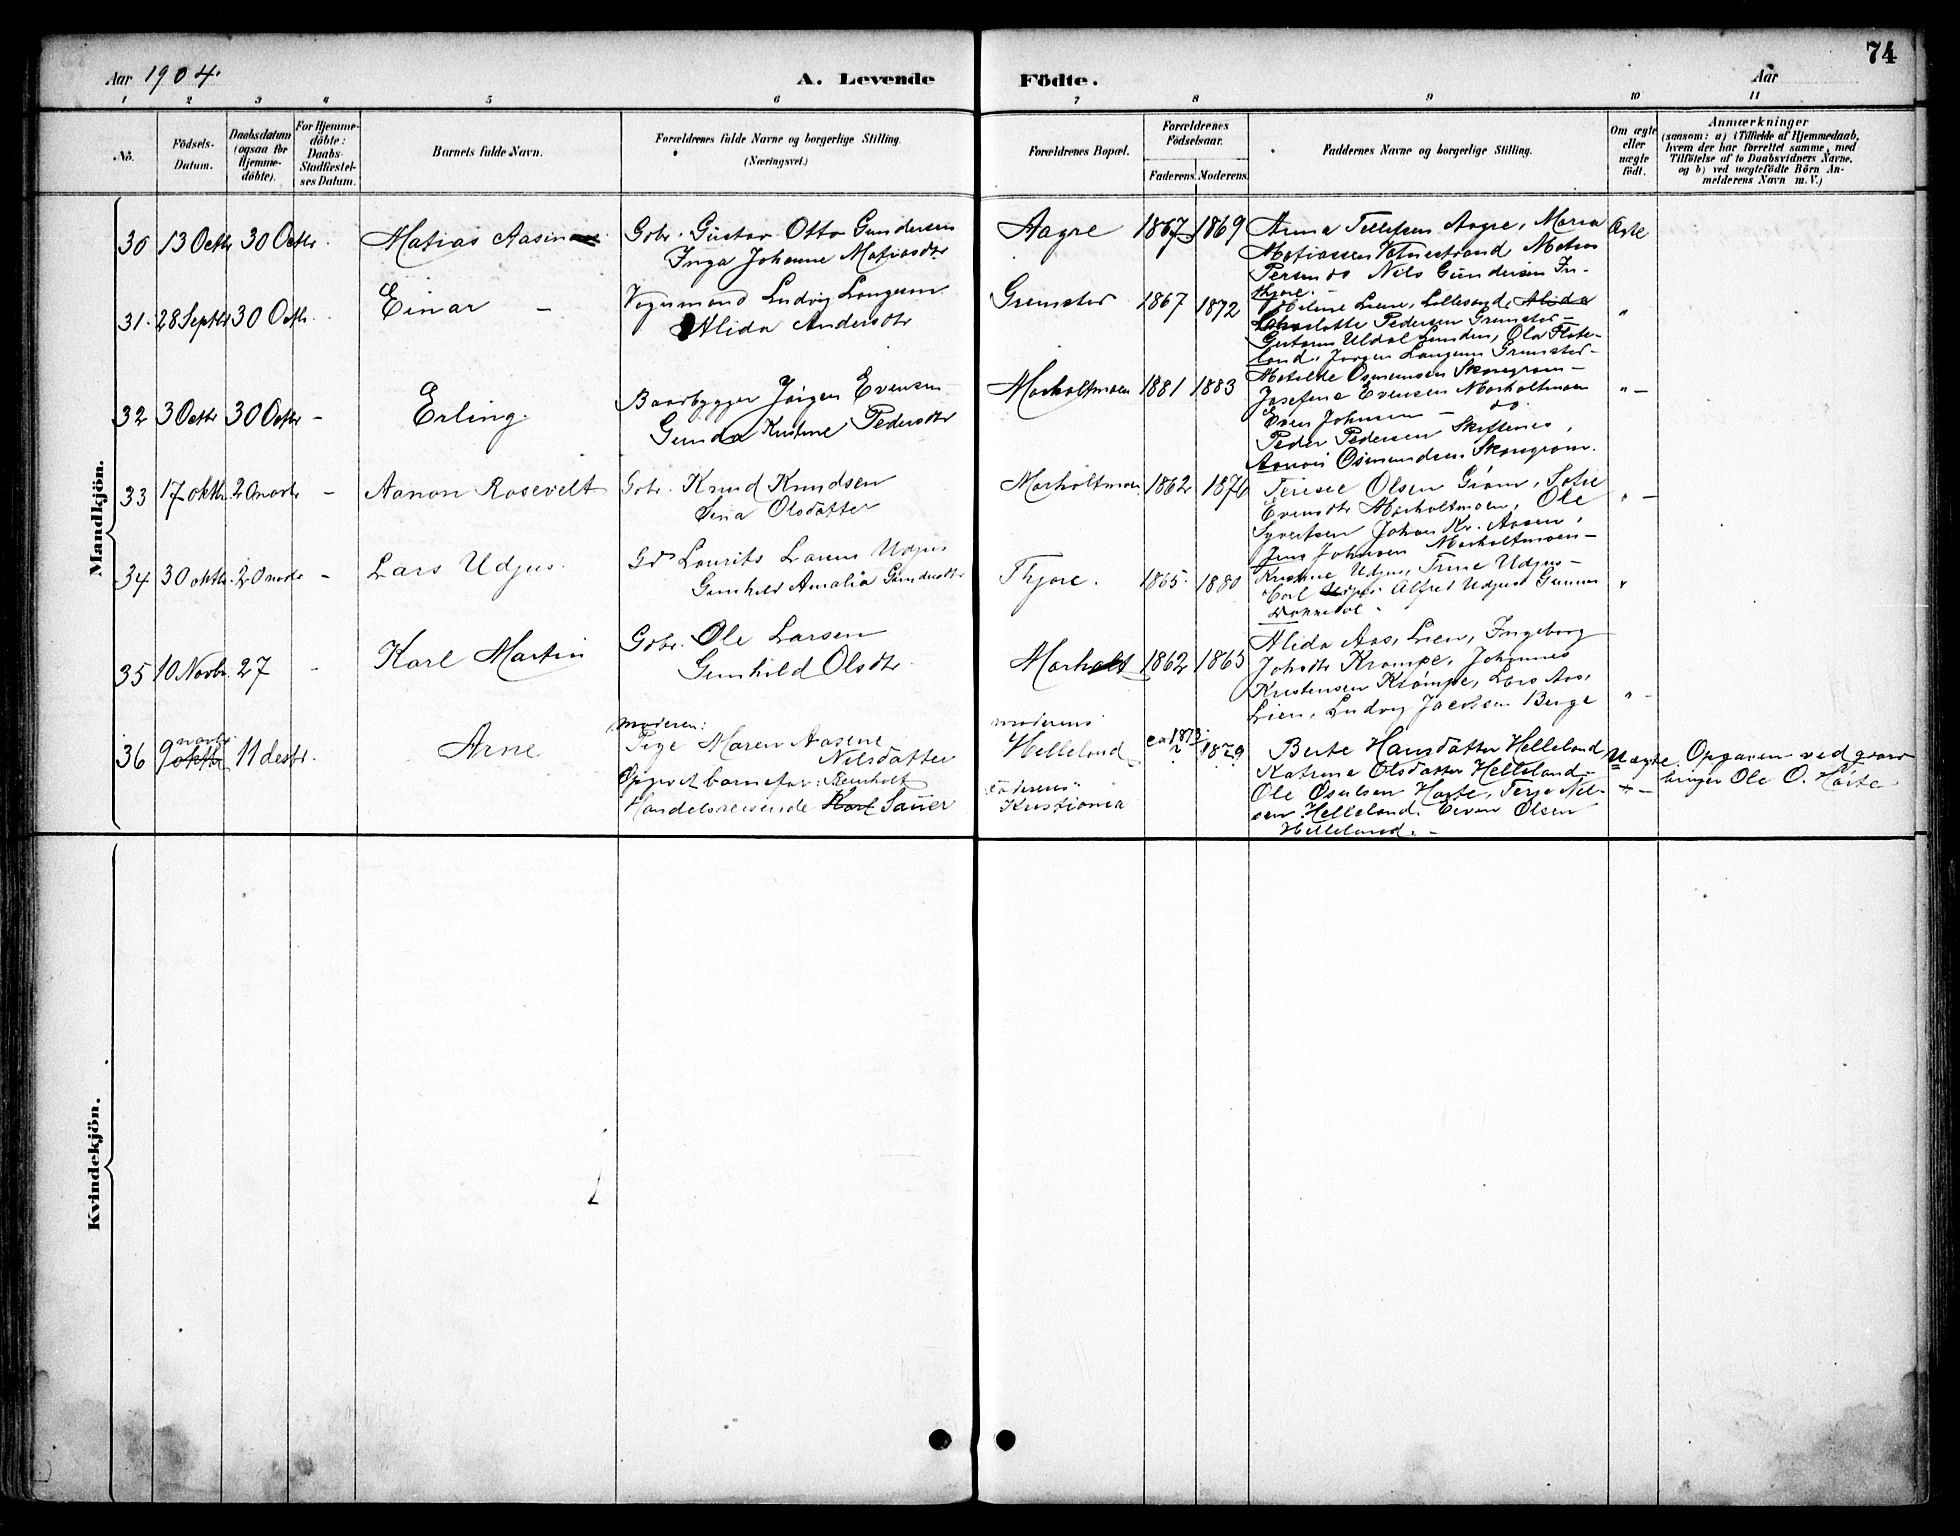 74
Aar 1904.
A. Levende Födte.
Aar
1 2 3 4 5 6 7 8 9 10 11
No.
Födsels-
Datum.
Daabsdatum
(ogsaa for
Hjemme-
döbte).
For Hjemme-
döbte:
Daabs-
Stadfæstel-
ses Datum.
Barnets fulde Navn.
Forældrenes fulde Navne og borgerlige Stilling.
(Næringsvei.)
Forældrenes Bopæl.
Forældrenes
Födselsaar.
Faderens. Moderens.
Faddernes Navne og borgerlige Stilling.
Om ægte
eller
uægte
födt.
Anmærkninger
(saasom: a) i Tilfælde af Hjemmedaab,
hvem der har forrettet samme, med
Tilföielse af to Daabsvidners Navne,
og b) ved uægtefödte Börn An-
melderens Navn m. V.)
Mandkjön.
30 13 Octbr 30 Octbr. Matias Aasin
Gbr. Gustav Otto Gundersen
Inga Johanne Matiasdtr
Aagre 1867 1869
Anna Tellefsen Aagre, Maria
Matiassen Vatnestrand Matias
Persen do Nils Gundersen In-
Ægte
31. 28 Septbr 30 Octbr. Einar –
Ludvig Langum
Alida Andersdtr
Grimstad 1867 1872
Lillesand, Alida
Charlotte Pedersen Grimstad –
Jørgen Langum Grimstad –
"
32 3 Octbr 30 Octbr – Erling.
Baadbygger Jørgen Evensen
Gunda Kristine Pedersdtr
Morholtmoen 1881 1883
Matilde Osmunsen Skaregrøm –
Josefine Evensen Morholtmoen
Even Johnsen – do
Peder Pedersen Skiftenes,
Aanon Osmundsen Skaregrøm.
" –
33 17 oktbr. 20 novbr – Aanon Rosevelt
Gbr. Knud Knudsen
Sina Olsdatter
Morholtmoen 1862 1876
Terese Olsen Grøm, Sofie
Evensdtr Morholtmoen, Ole
Syvertsen Johan Kr. Aasen,
Jens Johnsen Morholtmoen –
" –
34 30 oktbr. 20 novbr – Lars Udjus.
Gd Laurits Larsen Udjus
Gunhild Amalia Gundersdtr
Thjore. 1865. 1880
Kristine Udjus, Trine Udjus –
Carl Udjus Alfred Udjus Gunnar
"
35 10 Novbr. 27 – Karl Martin
Gbr. Ole Larsen
Gunhild Olsdtr.
Morholt 1862 1865
Alida Aas, Lien, Ingeborg
Johsdtr Krampe, Johannes
Kristensen Krampe, Lars Aas,
Lien, Ludvig Jacobsen Berge
" –
36 9 novbr. oktbr 11 desbr. Arne
moderen:
Pige Maren Aasene
Nilsdatter
Opgivet barnefar: Reinholt
Handelsreisende Karl Sauer
moderens
Helleland
faderens:
Kristiania
ca 1873. ? 1879
Berte Hansdatter Helleland
Katrine Olsdatter Helleland –
Ole Osulsen Høite, Terje Nil-
sen Helleland. Even Olsen
Helleland. –
Uægte
Opgaven ved
bringer Ole O. Høite
Kvindekjön.